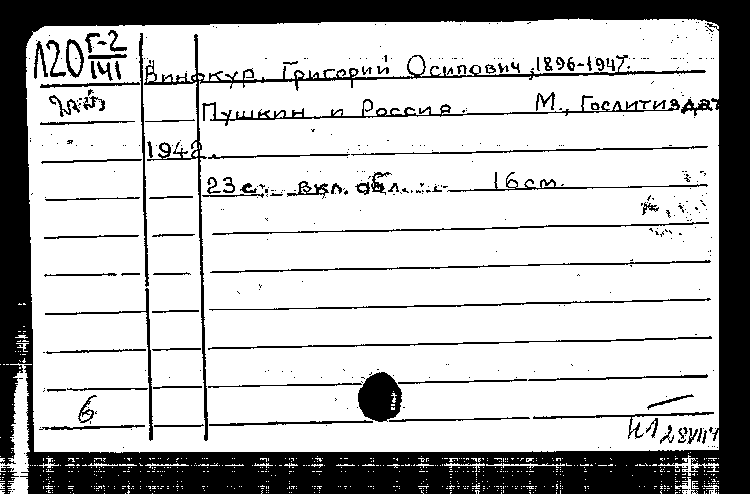 120 Г-2
141
Винокур, Григорий Осипович, 1896-1947.
Пушкин и Россия. М., Гослитиздат
1942.
23 с. вкл. обл. 16 см.
6